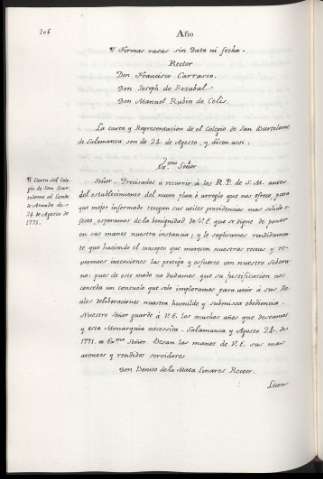 Año
¶ Formas varas sin Data ni fecha.
Rector
Don Francisco Carrasco.
Don Joseph de Rezabal.
Don Manuel Rubin de Celis.
La carta y Representacion del Colegio de San Bartolome
de Salamanca, son de 24. de Agosto, y dicen assi.
¶ Carta del Cole-
gio de San Bar-
tolome al Conde
de Aranda de
24 de Agosto de
1771.
Ex.mo Señor
Señor. Precisados á recurrir á los R. P. de S. M. acerca
del establecimiento del nuevo plan ó arreglo que nos ofrece, para
que mejor informado tengan sus utiles providencias mas solido
esperamos de la benignidad de V. E. que se digne de poner
en sus manos nuestra instancia; y le suplicamos rendidamen-
te, que haciendo el aprecio que merecen nuestras rectas y re-
verentes intenciones las proteja y esfuerce con nuestro Sobera-
no; pues de este modo no dudamos que su justificacion nos
conceda un consuelo que solo imploramos para unir á sus Re-
ales deliberaciones nuestra humilde y submissa obediencia.
Nuestro Señor guarde á V. E. los muchos años que deseamos
y esta Monarquia necesita. Salamanca y Agosto 24. de
1771. = Ex.mo Señor. Besan las manos de V. E. sus mas
atentos y rendidos servidores
Don Benito de la Mata Linares Rector.